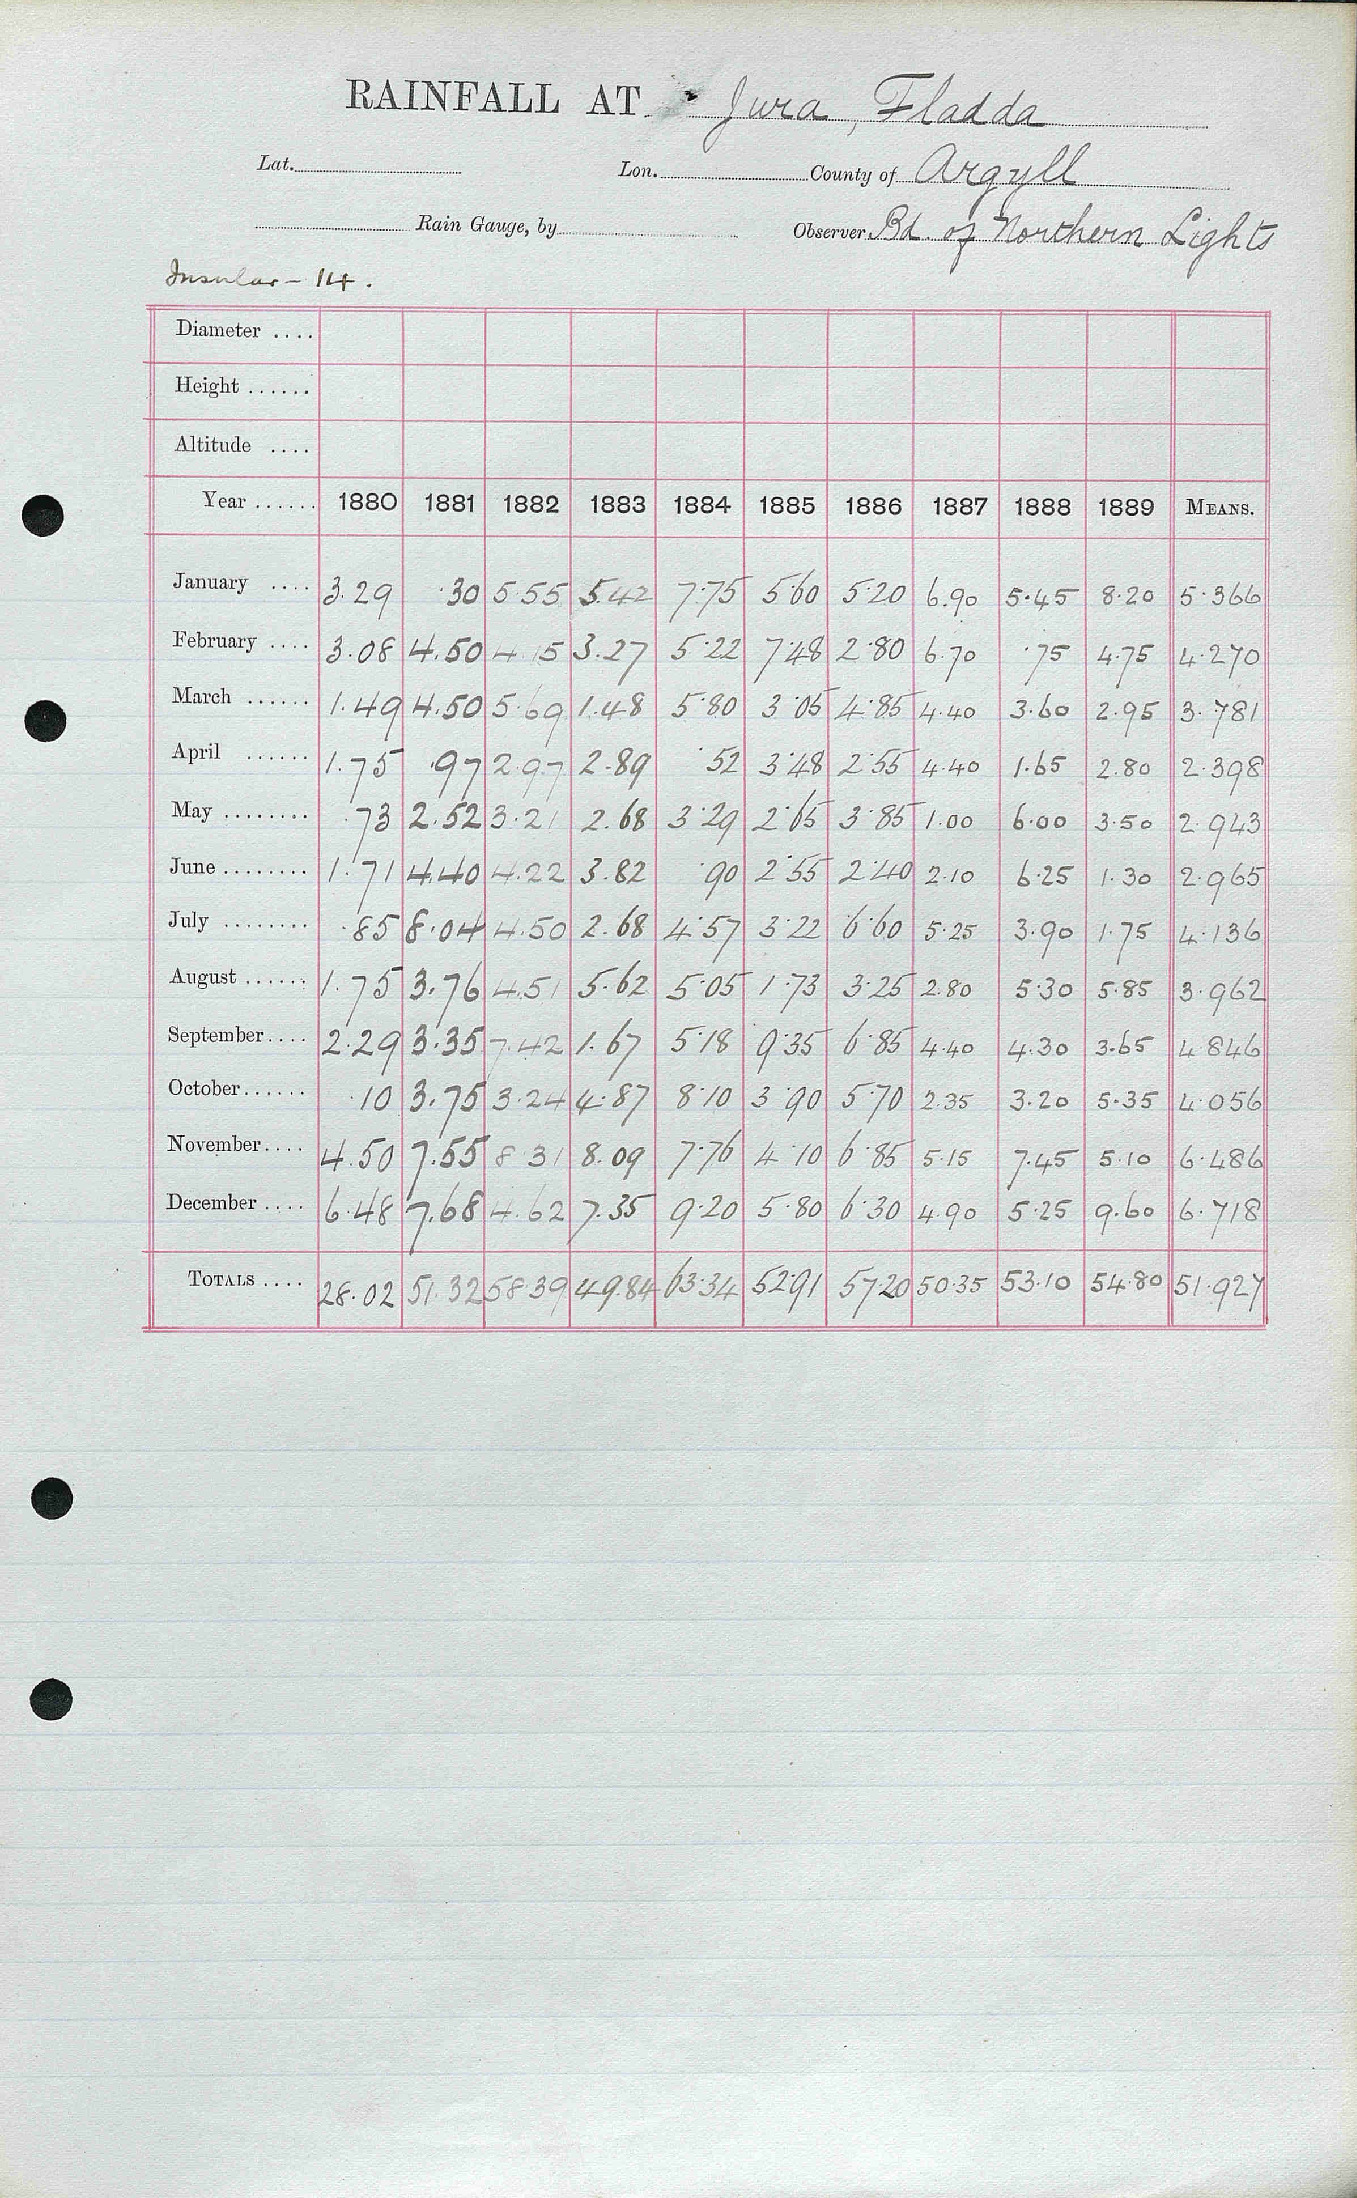 RAINFALL AT Jura, Fladda
Lat. Lon. County of Argyll
Rain Gauge, by Observer Bd. of Northern Lights
Insular - 14.
Diameter ....
Height ......
Altitude ....
Year ...... 1880 1881 1882 1883 1884 1885 1886 1887 1888 1889 MEANS.
January .... 3.29 .30 5.55 5.42 7.75 5.60 5.20 6.90 5.45 8.20 5.366
February .... 3.08 4.50 4.15 3.27 5.22 7.48 2.80 6.70 .75 4.75 4.270
March ...... 1.49 4.50 5.69 1.48 5.80 3.05 4.85 4.40 3.60 2.95 3.781
April ...... 1.75 .97 2.97 2.89 .52 3.48 2.55 4.40 1.65 2.80 2.398
May ........ .73 2.52 3.21 2.68 3.29 2.65 3.85 1.00 6.00 3.50 2.943
June ........ 1.71 4.40 4.22 3.82 .90 2.55 2.40 2.10 6.25 1.30 2.965
July ........ .85 8.04 4.50 2.68 4.57 3.22 6.60 5.25 3.90 1.75 4.136
August ...... 1.75 3.76 4.51 5.62 5.05 1.73 3.25 2.80 5.30 5.85 3.962
September.... 2.29 3.35 7.42 1.67 5.18 9.35 6.85 4.40 4.30 3.65 4.846
October...... .10 3.75 3.24 4.87 8.10 3.90 5.70 2.35 3.20 5.35 4.056
November.... 4.50 7.55 8.31 8.09 7.76 4.10 6.85 5.15 7.45 5.10 6.486
December .... 6.48 7.68 4.62 7.35 9.20 5.80 6.30 4.90 5.25 9.60 6.718
TOTALS .... 28.02 51.32 58.39 49.84 63.34 52.91 57.20 50.35 53.10 54.80 51.927